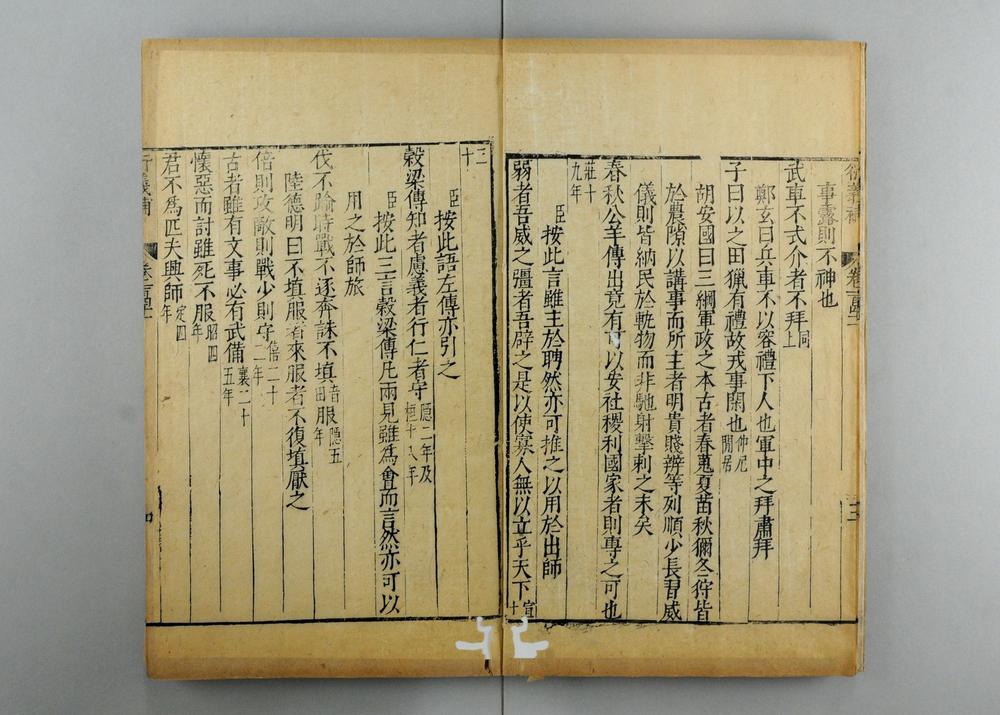 衍義補 卷一百四十一
事露則不神也
武車不式介者不拜同上
鄭玄曰兵車不以容禮下人也軍中之拜肅拜
子曰以之田獵有禮故戎事閑也仲尼閒居
胡安國曰三綱軍政之本古者春蒐夏苗秋獮冬狩皆
於農隙以講事而所主者明貴賤辨等列順少長習威
儀則皆納民於軌物而非馳射擊刺之末矣
春秋公羊傳出竟有可以安社稷利國家者則專之可也
莊十九年
臣按此言雖主於聘然亦可推之以用於出師
弱者吾威之彊者吾辟之是以使寡人無以立乎天下宣十
三十
臣按此語左傳亦引之
穀梁傳知者慮義者行仁者守隱二年及桓十八年
臣按此三言穀梁傳凡兩見雖為會而言然亦可以
用之於師旅
伐不踰時戰不逐奔誅不填音田服隱五年
陸德明曰不填服者來服者不復填厭之
倍則攻敵則戰少則守僖二十二年
古者雖有文事必有武備襄二十五年
懷惡而討雖死不服昭四年
君不為匹夫興師定四年
衍義補